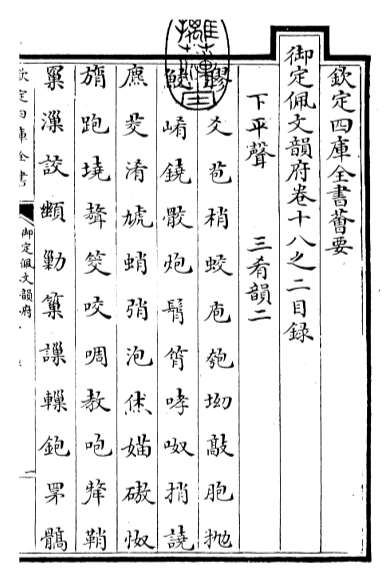 欽定四庫全書薈要
御定佩文韻府卷十八之二目錄
下平聲 三肴韻二
膠爻苞梢蛟庖匏坳敲胞抛
鮫崤鐃骹炮髾筲哮呶捎譊
庨茭淆虓蛸弰泡烋媌磝怓
旓跑墝謷筊咬啁教咆犛鞘
罺漅詨勦轈鉋罞
欽定四庫全書
御定佩文韻府